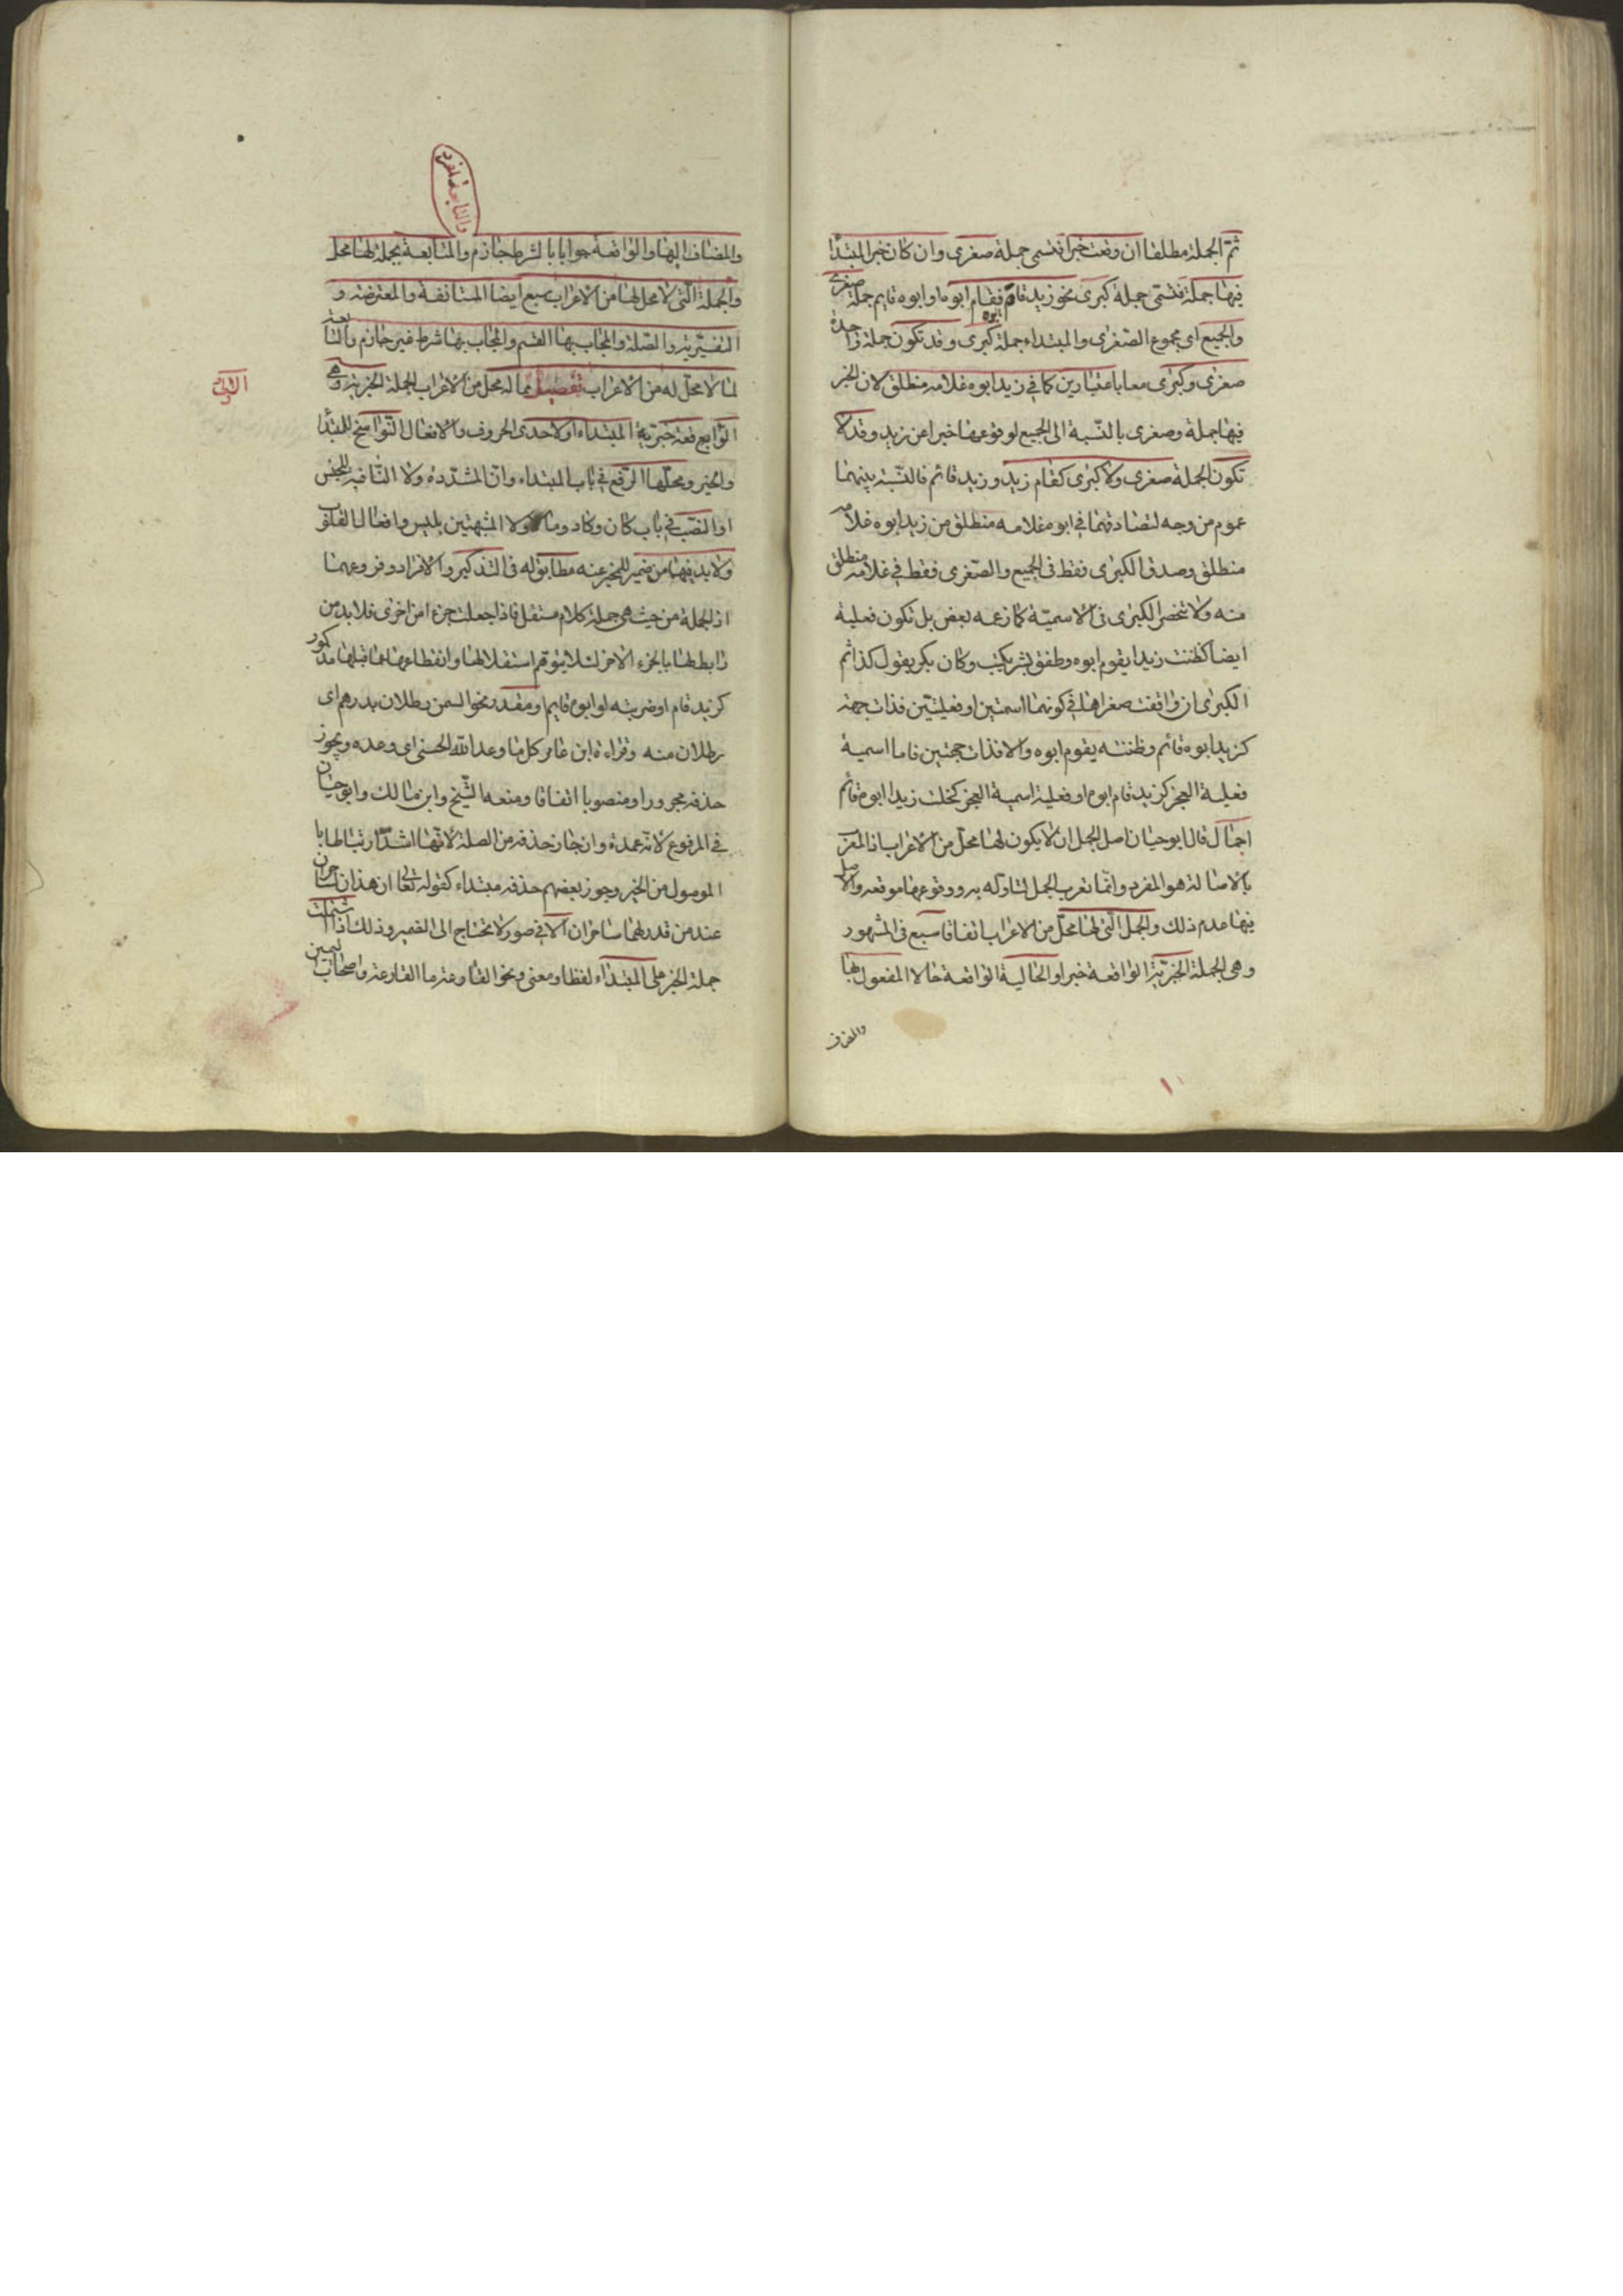 ثم الجملة مطلقا ان وقعت خبرا فتسمى جملة صغرى وان كان خبر المبتدا
فيها جملة فتسمى جملة كبرى نحو زيد قام ابوه فقام ابوه او ابوه قايم جملة صغرى
والجميع اى مجموع الصغرى والمبتداء جملة كبرى وقد تكون جملة واحدة
صغرى وكبرى معا باعتبارين كما في زيد ابوه غلامه منطلق لان الخبر
فيها جملة وصغرى بالنسبة الى الجميع لوقوعها خبرا عن زيد وقد لا
تكون الجملة صغرى ولا كبرى كقام زيد وزيد قائم فالنسبة بينهما
عموم من وجه لتصادقهما في ابوه غلامه منطلق من زيد ابوه غلامه
منطلق وصدق الكبرى فقط في الجميع والصغرى فقط في غلامه منطلق
منه ولا تنحصر الكبرى في الاسمية كما زعمه بعض بل تكون فعلية
ايضا كظننت زيدا يقوم ابوه وطفق بشر يكتب وكان بكر يقول كذا ثم
الكبرى ان وافقت صغراها في كونهما اسمتين او فعليتين فذات جهة
كزيد ابوه قائم وظننته يقوم ابوه والا فذات جهتين فاما اسمية
فعلية العجز كزيد قام ابوه او فعلية اسمية العجز كخلت زيدا ابوه قائم
اجمال قال ابوحيان اصل الجمل ان لا يكون لها محل من الاعراب اذ المعرب
بالاصالة هو المفرد وانما تعرب الجمل لتاوله به ووقوعها موقعه والاصل
فيها عدم ذلك والجمل التى لها محل من الاعراب اتفاقا سبع فى المشهور
وهى الجملة الخبرية الواقعة خبرا والحالية الواقعة حالا المفعول بها
والمضاف
والتابعة لمفرد
والمضاف اليها والواقعة جوابا بالشرط جازم والتابعة بجملة لها محل
والجملة التى لا محل لها من الاعراب سبع ايضا المستانفة والمعترضة و
التفسيرية والصلة والمجاب بها القسم والمجاب بها شرط غير جازم والتابعة
لما لا محل له من الاعراب تفصيل مما له محل من الاعراب الجملة الخبرية وهى
الواقعة خبرية المبتداء او لاحدى الحروف والافعال النواسخ للمبتدا
والخبر ومحلها الرفع في باب المبتداء وان المشددة ولا النافية للجنس
او النصب في باب كان وكاد وما ولا المشبهتين بليس وافعال القلوب
ولا بد فيها من ضمير للمخبر عنه مطابق له فى التذكير والافراد وفروعهما
اذ الجملة من حيث هى جملة كلام مستقل فاذا جعلت جزءا من اخرى فلا بد من
رابط لها بالجزء الاخر لئلا يتوهم استقلالها وانقطاعها عما قبلها مذكور
كزيد قام او ضربته او ابوه قايم او مقدر نحو السمن رطلان بدرهم اى
رطلان منه وقراءة ابن عامر كل ما وعد الله الحسنى اى وعده ويجوز
حذفه مجرورا ومنصوبا اتفاقا ومنعه الشيخ وابن مالك وابوحيان
في المرفوع لانه عمدة وان جاز حذفه من الصلة لانها اشد ارتباطا با
الموصول من الخبر وجوز بعضهم حذفه مبتداء كقوله تعالى ان هذان لساحران
عند من قدر لهما ساحران الا في صور لا تحتاج الى الضمير وذلك اذا اشتملت
جملة الخبر على المبتداء لفظا ومعنى ونحو القارعة ما القارعة واصحاب اليمين